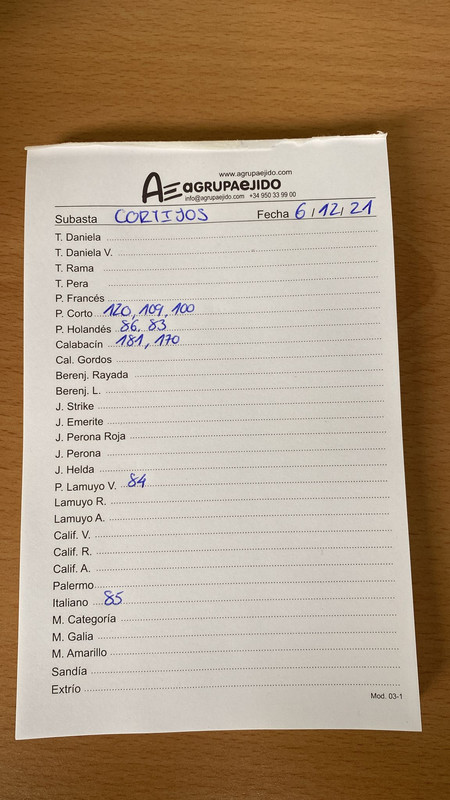 www.agrupaejido.com
AE AGRUPAEJIDO
info@agrupaejido.com +34 950 33 99 00
Subasta CORTIJOS Fecha 6 / 12 / 21
T. Daniela
T. Daniela V.
T. Rama
T. Pera
P. Francés
P. Corto 120, 109, 100
P. Holandés 86, 83
Calabacín 181, 170
Cal. Gordos
Berenj. Rayada
Berenj. L.
J. Strike
J. Emerite
J. Perona Roja
J. Perona
J. Helda
P. Lamuyo V. 84
Lamuyo R.
Lamuyo A.
Calif. V.
Calif. R.
Calif. A.
Palermo
Italiano 85
M. Categoría
M. Galia
M. Amarillo
Sandía
Extrío
Mod. 03-1